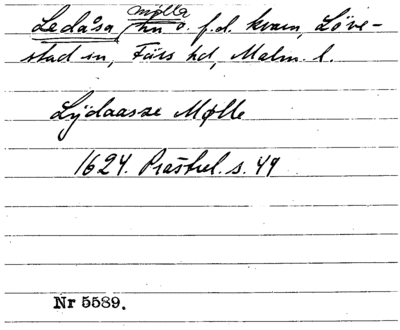 Ledåsa mölla hn o. f.d. kvarn, Löve-
stad sn, Färs hd, Malm. l.
Lÿdaasze Mølle
1624. Prästrel. s. 49
Nr 5589.